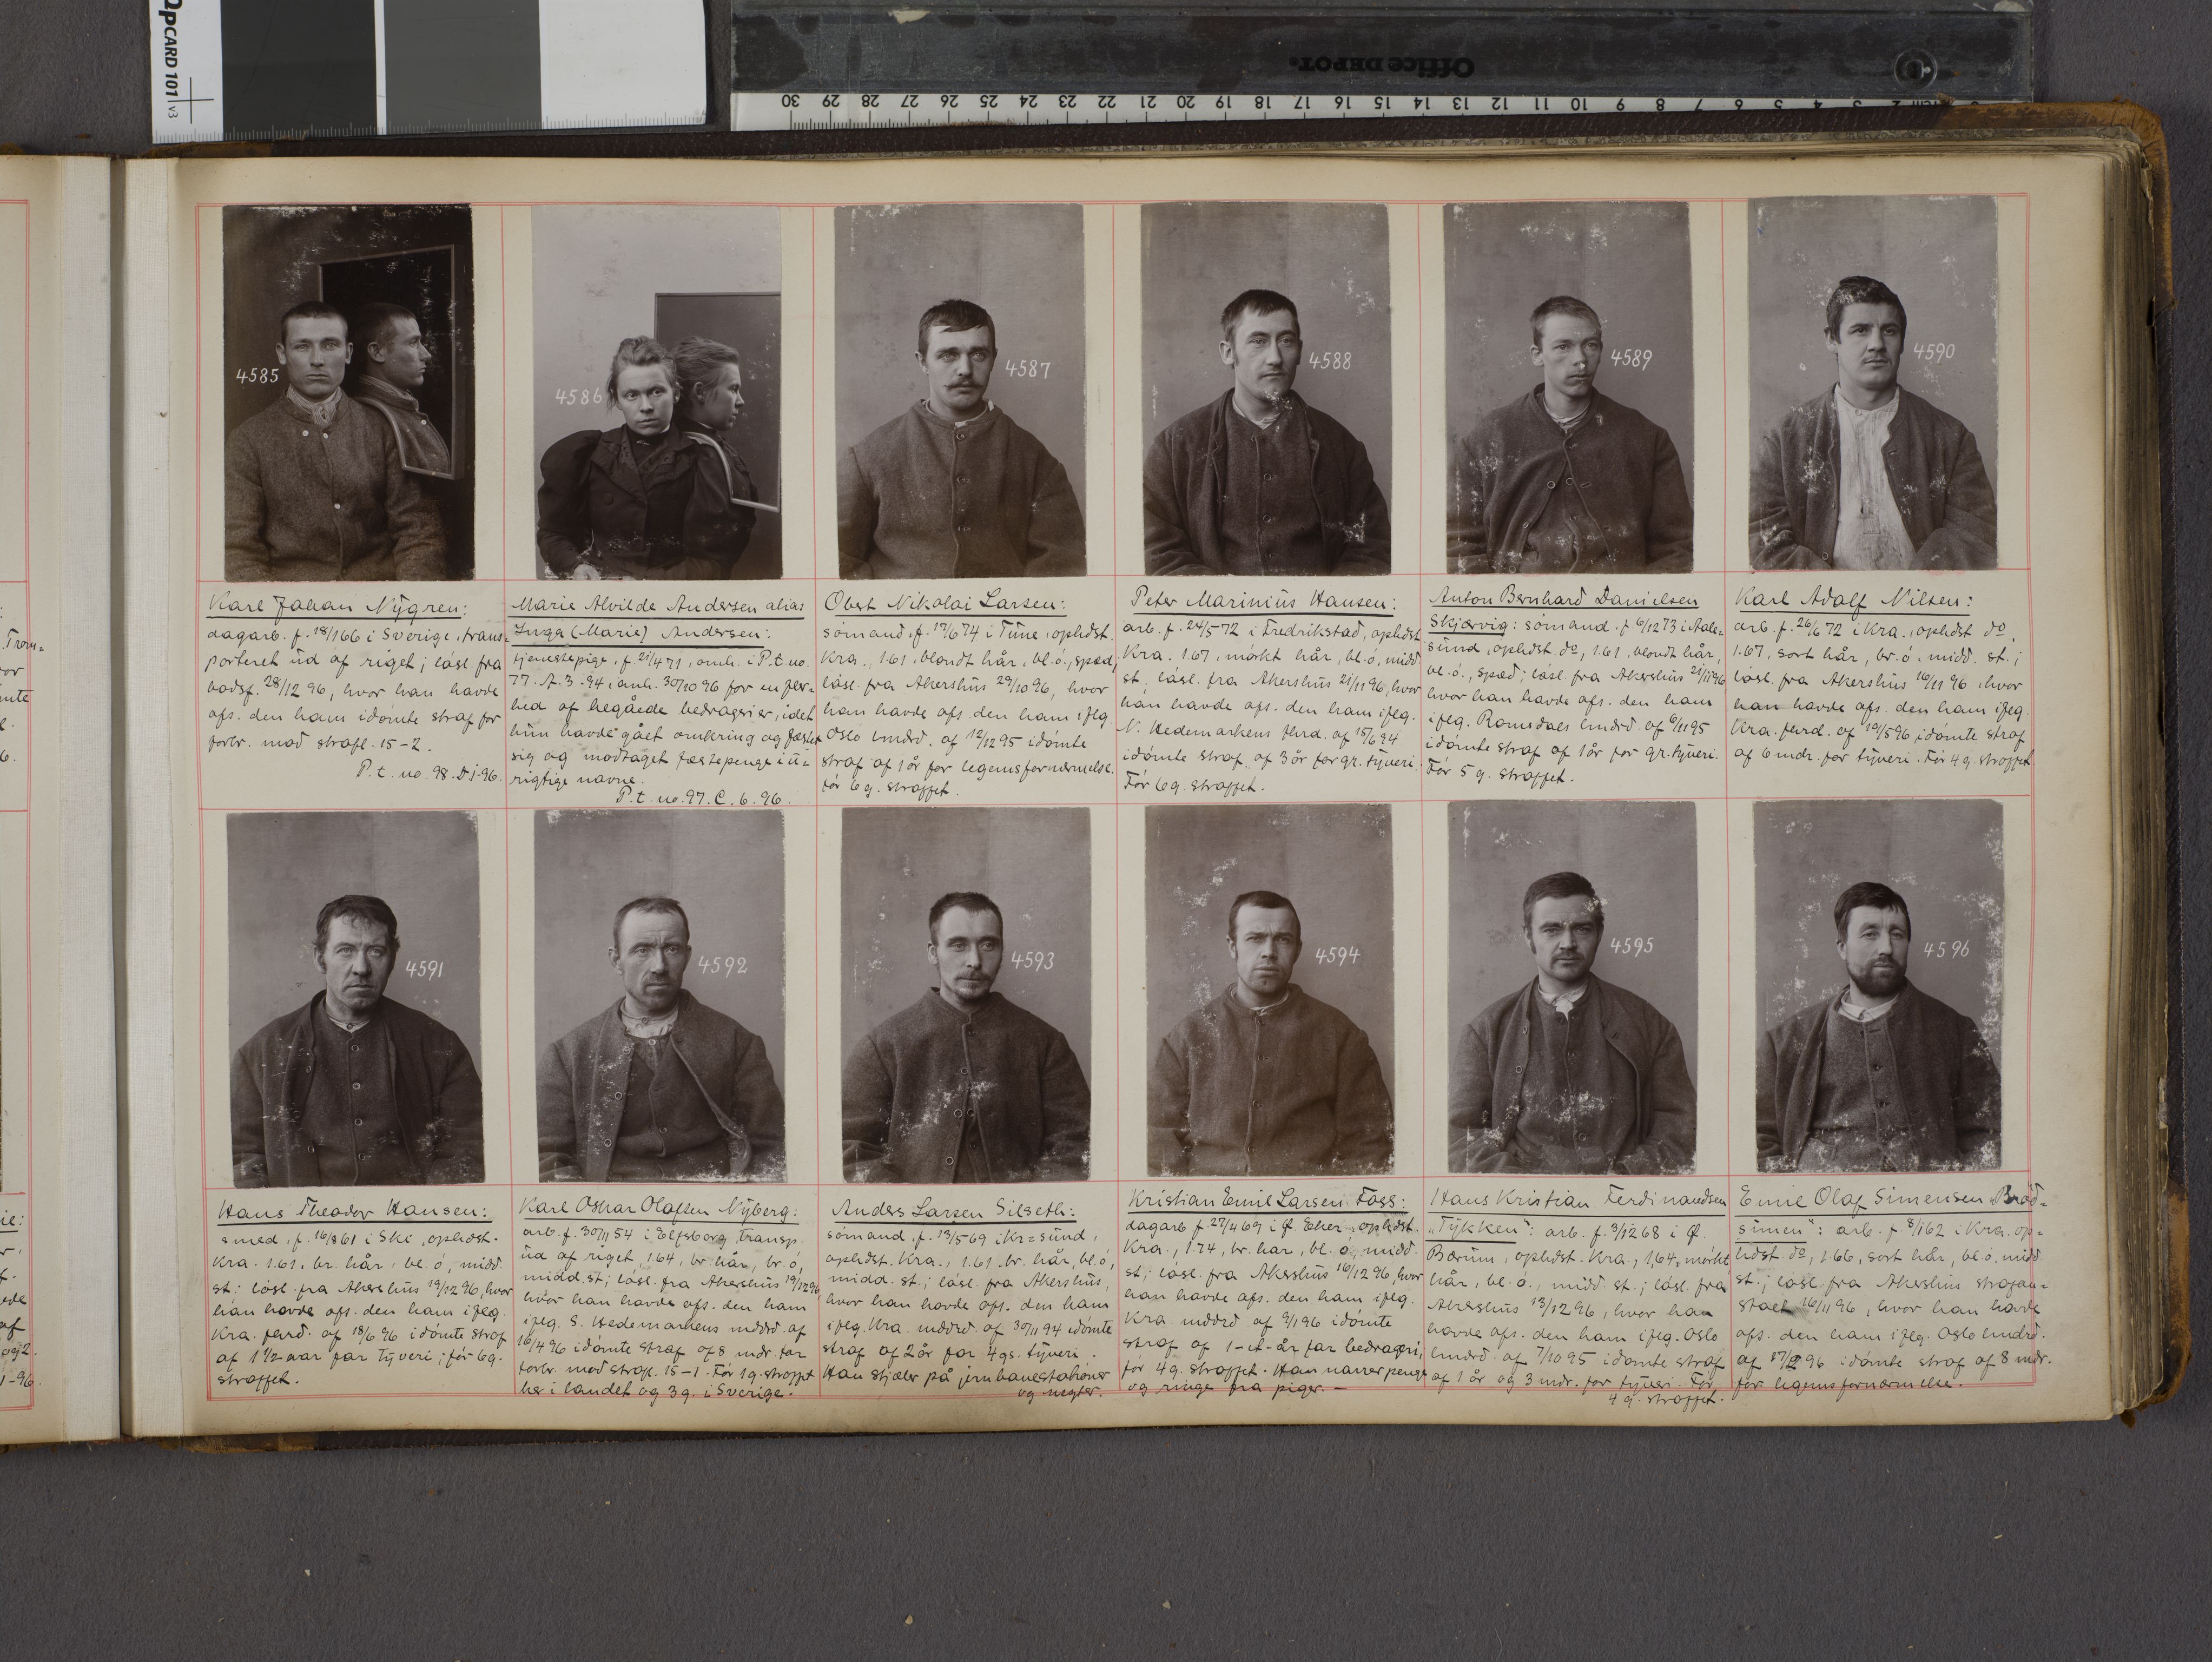 OpCARD 101 v3
Office DEPOT
30 29 28 27 26 25 24 23 22 21 20 19 18 17 16 15 14 13 12 11 10 9 8 7 6 5 4 3 2
4585
4586
4587
4588
4589
4590
Karl Johan Nygren:
dagarb. f. 18/1 66 i Sverige, trans=
porteret ud af riget; løsl. fra
bodsf. 28/12 96, hvor han havde
afs. den ham idømte straf for
forbr. mod strafl. 15-2.
P.t. no. 98. D. 1. 96.
Marie Alvilde Andersen alias
Inga (Marie) Andersen:
tjenestepige, f. 21/4 71, omh. i P.t. no.
77. A. 3. 94, anh. 30/10 96 for en fler=
hed af begåede bedragerier, idet
hun havde gået omkring og fæstet
sig og modtaget fæstepenge i u=
rigtige navne.
P.t. no. 97. C. 6. 96.
Obert Nikolai Larsen:
sømand, f. 17/6 74 i Tune, ophdst.
Kra., 1.61, blondt hår, bl. ø., spæd;
løsl. fra Akershus 29/10 96, hvor
han havde afs. den ham ifølg.
Oslo lmdrd. af 12/12 95 idømte
straf af 1 år for legemsfornærmelse.
Før 6 g. straffet.
Peter Marinius Hansen:
arb. f. 24/5 72 i Fredrikstad, ophdst
Kra. 1.67, mørkt hår, bl. ø, midd.
st; løsl. fra Akershus 21/11 96, hvor
han havde afs. den ham ifølg.
N. Hedemarkens hrd. af 15/6 94
idømte straf af 3 år for gr. tyveri.
Før 6 g. straffet.
Anton Bernhard Danielsen
Skjærvig: sømand. f 6/12 73 i Aale=
sund, ophdst. do, 1.61, blondt hår,
bl. ø., spæd; løsl. fra Akershus 21/11 96
hvor han havde afs. den ham
ifølg. Romsdals lmdrd af 6/11 95
idømte straf af 1 år for gr. tyveri.
Før 5 g. straffet.
Karl Adolf Nilsen:
arb. f. 26/6 72 i Kra., ophdst do,
1.67, sort hår, br. ø. midd. st.;
løsl. fra Akershus 16/11 96, hvor
han havde afs. den ham ifølg.
Kra. ferd. af 19/5 96 idømte straf
af 6 mdr. for tyveri. Før 4 g. straffet
4591
4592
4593
4594
4595
4596
Hans Theodor Hansen:
smed, f. 16/8 61 i Ski, ophdst.
Kra. 1.61, br. hår, bl. ø, midd.
st; løsl. fra Akershus 19/12 96, hvor
han havde afs. den ham ifølg.
Kra. ferd. af 18/6 96 idømte straf
af 1 1/2 aar for tyveri; før 6 g.
straffet.
Karl Oskar Olafsen Nyberg:
arb. f. 30/11 54 i Elfsborg, transp.
ud af riget, 1.64, br hår, br. ø,
midd. st; løsl. fra Akershus 19/12 96
hvor han havde afs. den ham
ifølg. S. Hedemarkens mddrd af
16/4 96 idømte straf af 8 mdr. for
forbr. mod strafl. 15-1. Før 1 g. straffet
her i landet og 3 g. i Sverige.
Anders Larsen Silseth:
sømand, f. 13/5 69 i Kr=sund,
ophdst. Kra., 1.61 br. hår, bl. ø,
midd. st.; løsl. fra Akershus,
hvor han havde afs. den ham
ifølg. Kra. mddrd. af 30/11 94 idømte
straf af 2 år for 4 gs. tyveri.
Han stjæler på jernbanestationer
og negter.
Kristian Emil Larsen Foss:
dagarb f. 27/4 69 i Ø. Eker, ophdst.
Kra., 1.74, br. hår, bl. ø, midd.
st; løsl. fra Akershus 16/12 96, hvor
han havde afs. den ham ifølg.
Kra. mddrd af 9/1 96 idømte
straf af 1-et-år for bedrageri,
før 4 g. straffet. Han narrer penge
og ringe fra piger.-
Hans Kristian Ferdinandsen
"Tykken": arb. f. 3/12 68 i Ø.
Bærum, ophdst. Kra., 1,64, mørkt
hår, bl. ø., midd. st.; løsl. fra
Akershus 13/12 96, hvor han
havde afs. den ham ifølg. Oslo
lmdrd. af 7/10 95 idømte straf
af 1 år og 3 mdr. for tyveri. Før
4 g. straffet.
Emil Olaf Simensen "Brød=
simen": arb. f 8/1 62 i Kra. op=
hdst. do, 1.66, sort hår, bl. ø. midd
st.; løsl. fra Akershus strafan=
stalt 16/11 96, hvor han havde
afs. den ham ifølg. Oslo lmdrd.
af 96 idømte straf af 8 mdr.
for legemsfornærmelse.